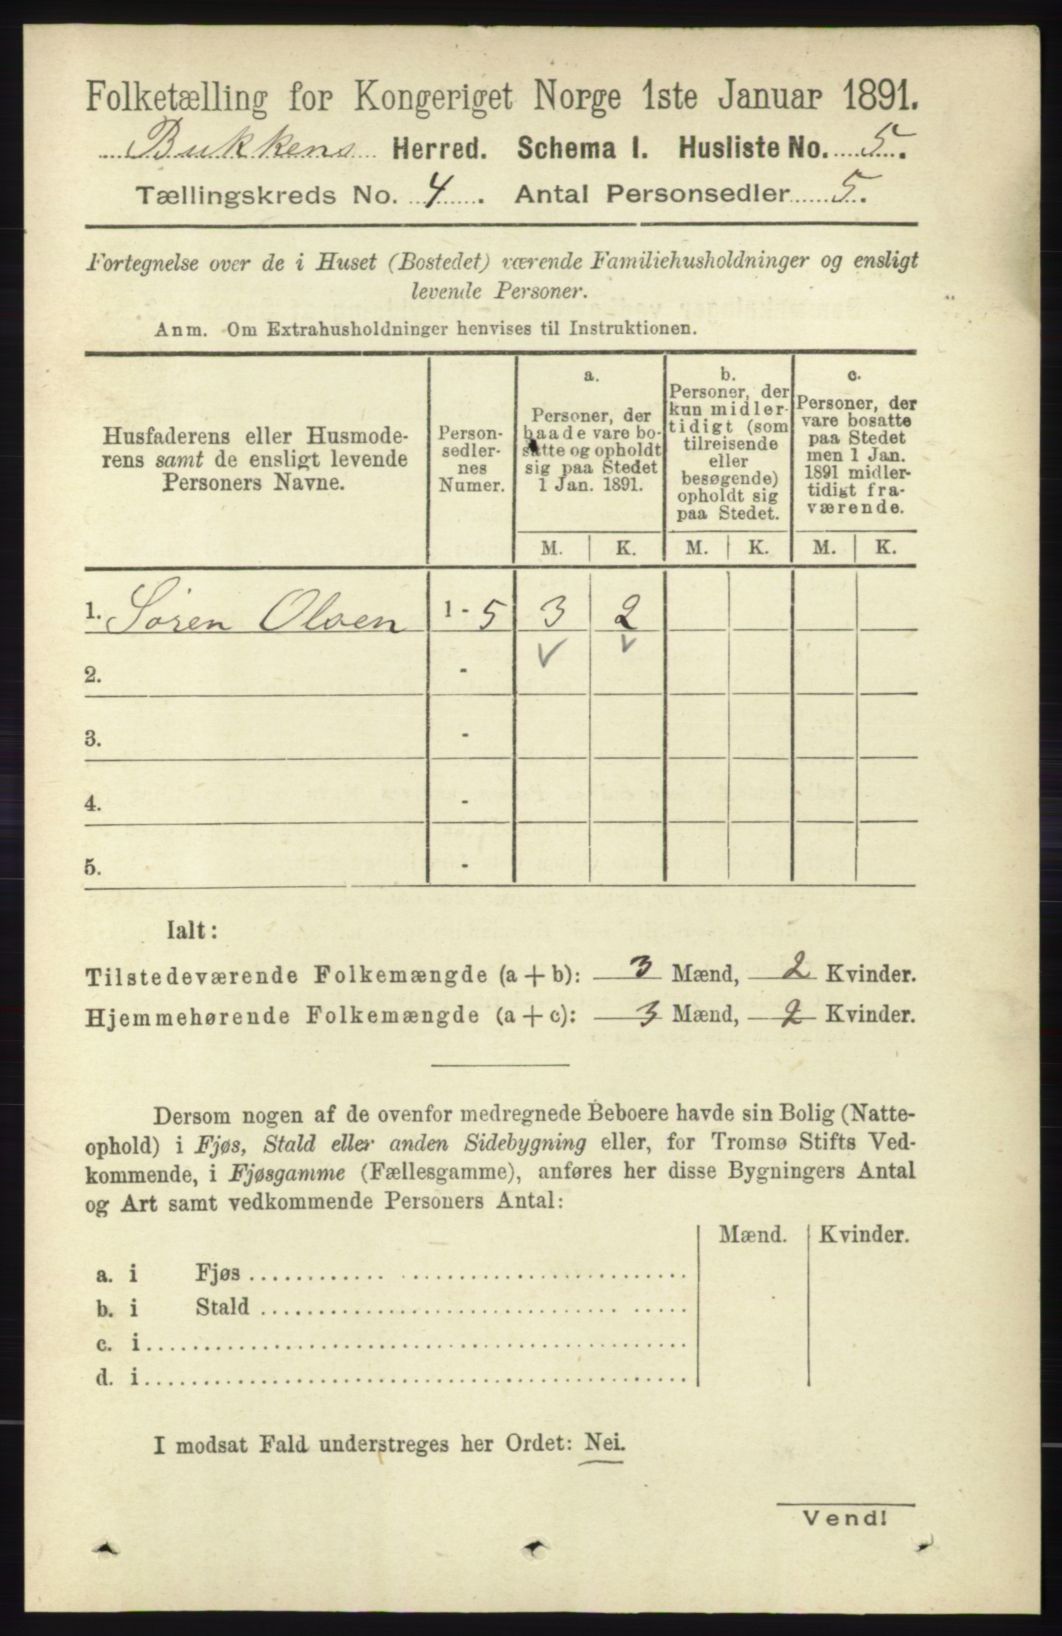 Folketælling for Kongeriget Norge 1ste Januar 1891.
Bukkens Herred. Schema I. Husliste No. 5.
Tællingskreds No. 4. Antal Personsedler 5.
Fortegnelse over de i Huset (Bostedet) værende Familiehusholdninger og ensligt
levende Personer.
Anm. Om Extrahusholdninger henvises til Instruktionen.
Husfaderens eller Husmode-
rens samt de ensligt levende
Personers Navne.
Person-
sedler-
nes
Numer.
a.
Personer, der
baade vare bo-
satte og opholdt
sig paa Stedet
1 Jan. 1891.
b.
Personer, der
kun midler-
tidigt (som
tilreisende
eller
besøgende)
opholdt sig
paa Stedet.
c.
Personer, der
vare bosatte
paa Stedet
men 1 Jan.
1891 midler-
tidigt fra-
værende.
M. K. M. K. M. K.
1. Søren Olsen 1 - 5 3 2
2. -
3. -
4. -
5. -
Ialt:
Tilstedeværende Folkemængde (a + b): 3 Mænd, 2 Kvinder.
Hjemmehørende Folkemængde (a + c): 3 Mænd, 2 Kvinder.
Dersom nogen af de ovenfor medregnede Beboere havde sin Bolig (Natte-
ophold) i Fjøs, Stald eller anden Sidebygning eller, for Tromsø Stifts Ved-
kommende, i Fjøsgamme (Fællesgamme), anføres her disse Bygningers Antal
og Art samt vedkommende Personers Antal:
Mænd. Kvinder.
a. i Fjøs
b. i Stald
c. i
d. i
I modsat Fald understreges her Ordet: Nei.
Vend!